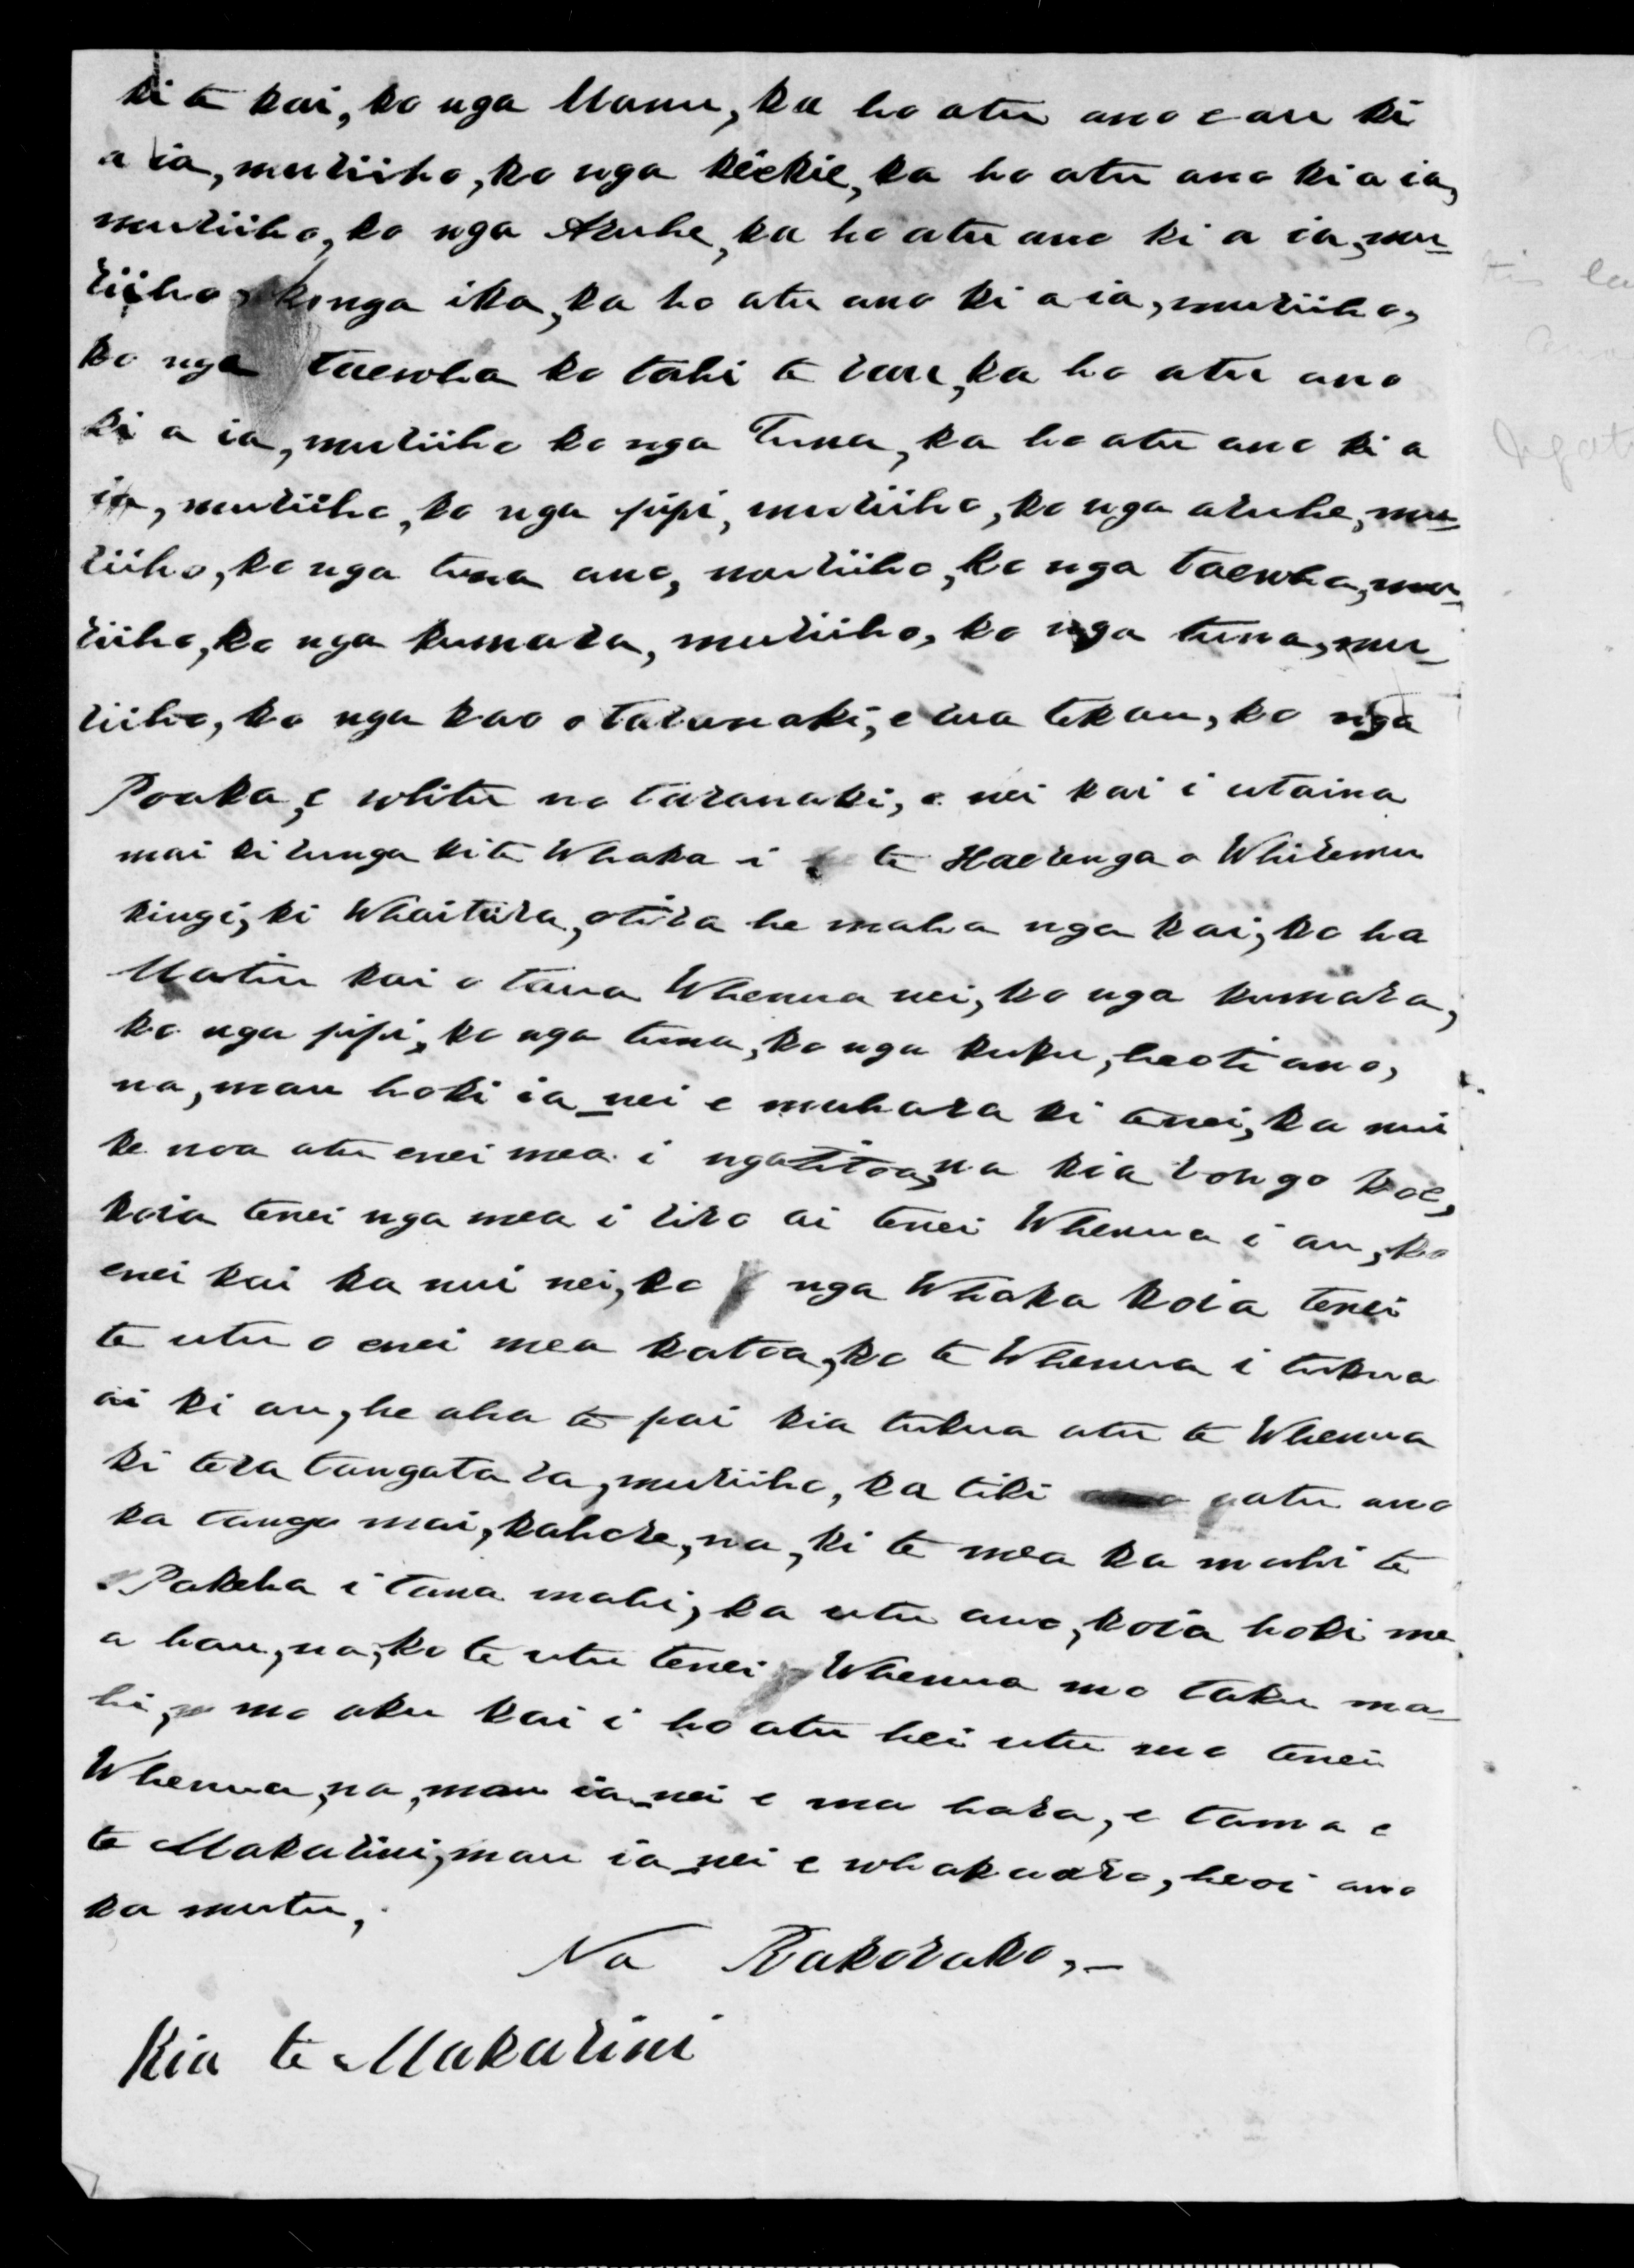 ki te kai, ko nga Manu, ka ho atu ano e au ki
a ia, muriiho, ko nga kiekie, ka ho atu ano ki a ia,
muriiho, ko nga Aruhe, ka ho atu ano ki a ia, mu-
riiho, ko nga ika, ka ho atu ano ki a ia, muriiho,
ko nga taewha ko tahi te rau, ka ho atu ano
ki a ia, muriiho ko nga Tuna, ka ho atu ano ki a
ia, muriiho, ko nga pipi, muriiho, ko nga aruhe, mu-
riiho, ko nga tuna ano, muriiho, ko nga taewha, mu-
riiho, ko nga kumara, muriiho, ko nga tuna, mu-
riiho, ko nga kao o taranaki, e rua tekau, ko nga
Poaka, e whitu no taranaki, e nei kai i utaina
mai ki runga ki te Whaka i te Haerenga o Whiremu
kingi, ki Whaitara, otira he maha nga kai, ko ha
Matiu kai o taua Whenua nei, ko nga kumara,
ko nga pipi, ko nga tuna, ko nga kuku, heoti ano,
na, mau hoki ia_nei e mahara ki tenei, ka nui
ke noa atu enei mea i ngatitoa, na kia rongo koe,
koia tenei nga mea i riro ai tenei Whenua i au, ko
enei kai ka nui nei, ko nga Whaka koia tenei
te utu o enei mea katoa, ko te Whenua i tukua
ai ki au, he aha te pai kia tukua atu te Whenua
ki tera tangata ra, muriiho, ka tiki atu ano
ka tango mai, kahore, na, ki te mea ka mahi te
Pakeha i tana mahi, ka utu ano, koia hoki me
a hau, na, ko te utu tenei Whenua mo taku ma-
hi, mo aku kai i ho atu hei utu mo tenei
Whenua, na, mau ia_nei e ma hara, e tama e
te Makarini, mau ia_nei e whakaaro, heoi ano
ka mutu,
Na Rakorako,_
Kia te Makarini